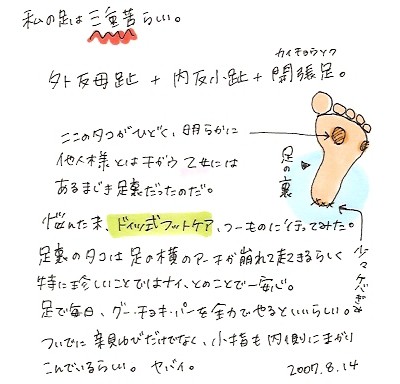 私の足は三重苦らしい。
外反母趾 + 内反小趾 + 開張足。
カイチョウソク
ここのタコがひどく、明らかに
他人様とはチガウ乙女には
あるまじき足裏だったのだ。
足の裏
悩んだ末、ドイツ式フットケア、つーものに行ってみた。
足裏のタコは足の横のアーチが崩れて起きるらしく
特に珍しいことではナイ、とのことで一安心。
足で毎日、グー・チョキ・パーを全力でやるといいらしい。
ついでに親ゆびだけでなく、小指も内側にまがり
こんでいるらしい。ヤバイ。
少々ケバギミ
2007.8.14